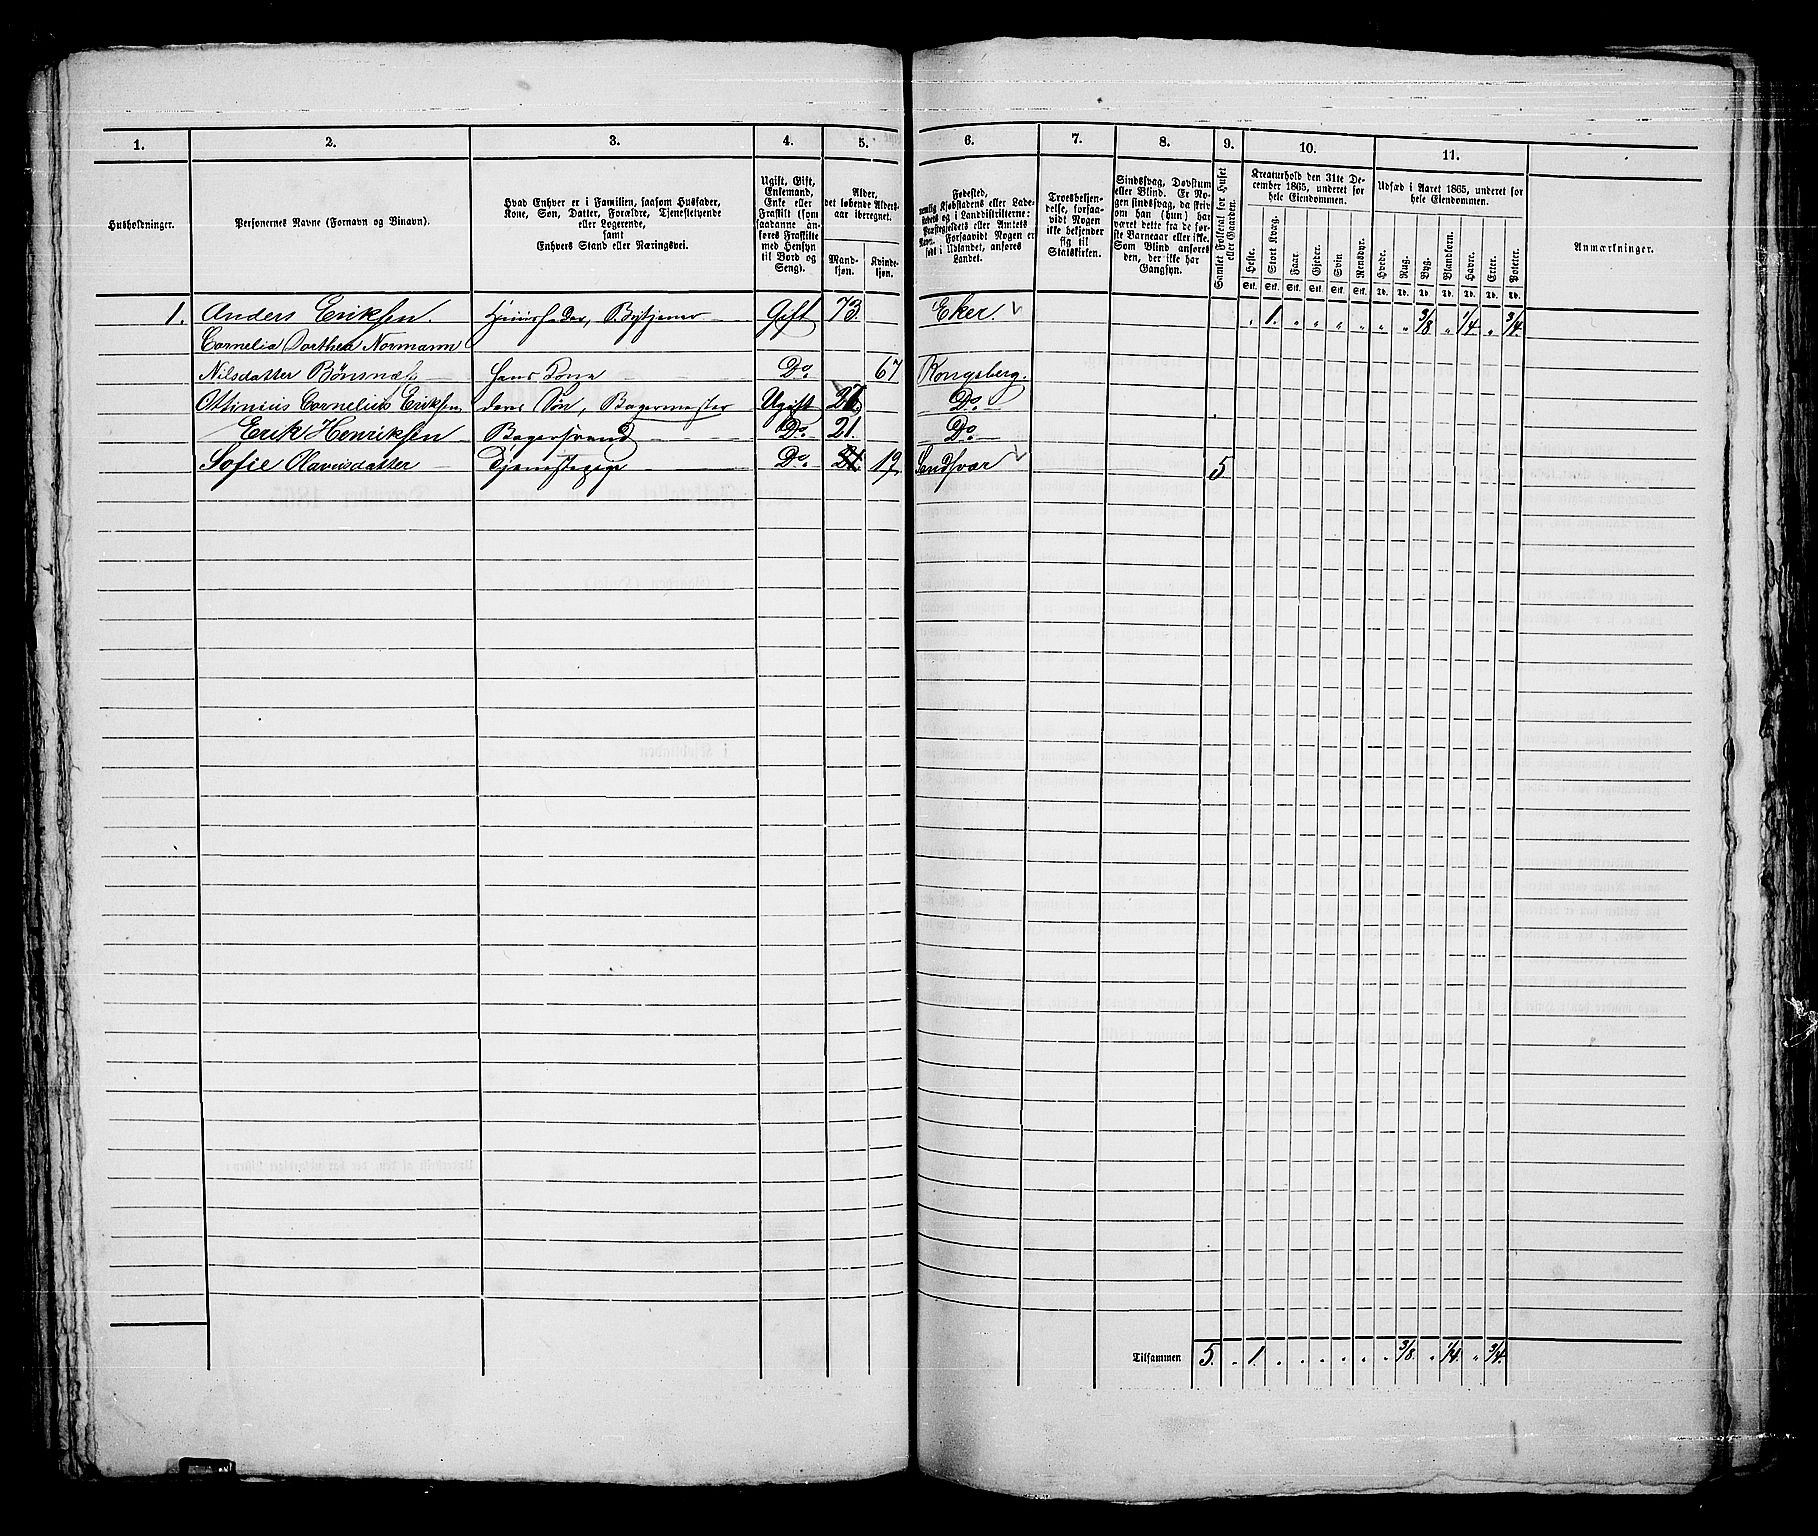 1. 2. 3. 4. 5. 6. 7. 8. 9. 10. 11.
Husholdninger.
Personernes Navne (Fornavn og Binavn).
Hvad Enhver er i Familien, saasom Husfader,
Kone, Søn, Datter, Forældre, Tjenestetyende
eller Logerende,
samt
Enhvers Stand eller Næringsvei.
Ugift, Gift,
Enkemand,
Enke eller
Fraskilt (som
saadanne an-
føres Fraskilte
med Hensyn
til Bord og
Seng).
Alder,
det løbende Alders-
aar iberegnet.
Mand-
kjøn.
Kvinde-
kjøn.
Fødested,
nemlig Kjøbstadens eller Lade-
stedets og i Landdistrikterne:
Præstegjeldets eller Amtets
Navn. Forsaavidt Nogen er
født i Udlandet, anføres
Landet.
Troesbekjen-
delse, forsaa-
vidt Nogen
ikke bekjender
sig til
Statskirken.
Sindssvag, Døvstum
eller Blind. Er No-
gen sindssvag, da skriv
om han (hun) har
været dette fra de før-
ste Barneaar eller ikke.
Som Blind anføres
den, der ikke har
Gangsyn.
Samlet Folketal for Huset
eller Gaarden.
Kreaturhold den 31te De-
cember 1865, underet for
hele Eiendommen.
Heste. Stort Kvæg. Faar. Gjeder. Svin Rensdyr.
Stk. Stk. Stk. Stk. Stk. Stk.
Udsæd i Aaret 1865, underet for
hele Eiendommen.
Hvede. Rug. Byg. Blandkorn. Havre. Erter. Poteter.
Td. Td. Td. Td. Td. Td. Td.
Anmærkninger.
1. Anders Eriksen. Huusfader, Bytjener Gift 73. Eker. " 1. " " " " " " 3/8 " 1/4 " 3/4.
Cornelia Dorthea Normann
Nilsdatter Bønsnæs hans Kone Do. 67 Kongsberg.
Ottinius Cornelius Eriksen deres Søn, Bagermester Ugift Do
Erik Henriksen Bagersvend Do 21. Do
Sofie Olavusdatter Tjenestepige Do. 21. 19. Sandsvær 5
Tilsammen 5. " 1. " " " " " " 3/8. " 1/4. " 3/4.